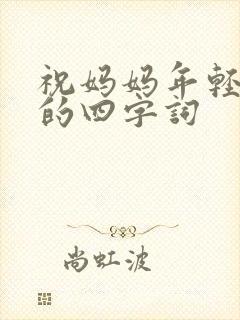 祝妈妈年輕
的四字詞
尚虹波